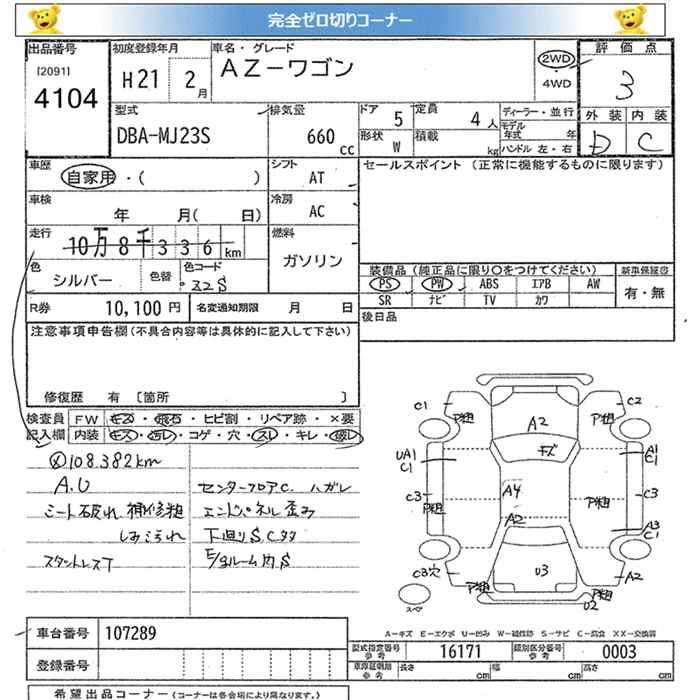 完全ゼロ切りコーナー
出品番号
[2091]
4104
初度登録年月
H21 2月
車名・グレード
AZ-ワゴン
2WD
・
4WD
評価点
3
外装 内装
D C
型式
DBA-MJ23S
排気量
660 cc
ドア 5
定員 4人
形状 W
積載 kg
ディーラー・並行
モデル年式 年
ハンドル 左・右
車歴
自家用・( )
シフト
AT
車検
年 月( 日)
冷房
AC
走行
10万8千336km
燃料
ガソリン
色
シルバー
色替
色コード
32S
R券 10,100円
名変通知期限 月 日
セールスポイント (正常に機能するものに限ります)
装備品(純正品に限り○をつけてください)
新車保証書
PS PW ABS エアB AW
有・無
SR ナビ TV カワ
後日品
注意事項申告欄(不具合内容等は具体的に記入して下さい)
修復歴 有 [箇所 ]
検査員記入欄
FW キズ・飛石・ヒビ割・リペア跡・×要
内装 キズ・汚レ・コゲ・穴・スレ・キレ・破レ
108.382km
A.U
センターフロアC. ハガレ
シート破れ 補修粗
エンドパネル 歪み
しみ汚れ
下廻りSCタタ
スタントレスT
E/gルーム内S
C1 P粗 A2 P粗 C2
キズ
UA1 C1
A1 C1
C3 P粗
A4
P粗
C3
A2
A3 C1
C3穴
P粗
U3
P粗
A2
U2
スペ
A-キズ E-エクボ U-凹み W-補修跡 S-サビ C-腐食 XX-交換済
車台番号 107289
登録番号
型式指定番号 参考 16171
類別区分番号 参考 0003
車庫証明用 参考 長さ cm 幅 cm 高さ cm
希望出品コーナー (コーナーは各会場により異なります。)